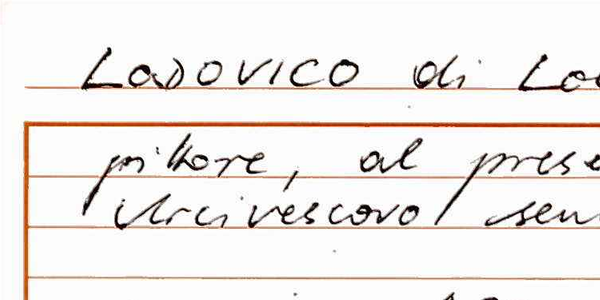 Lodovico di Lo
pittore, al prese
Arcivescovo sen